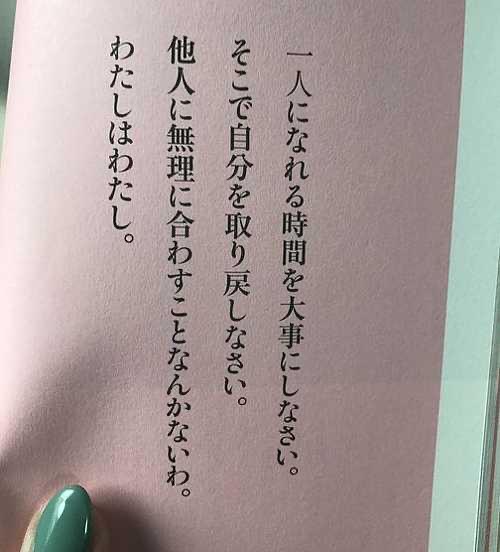 一人になれる時間を大事にしなさい。
そこで自分を取り戻しなさい。
他人に無理に合わすことなんかないわ。
わたしはわたし。